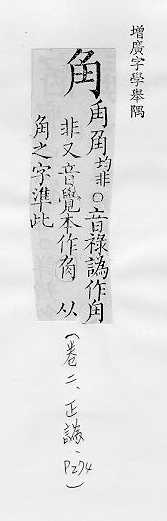 增廣字學舉隅
角
均非○音祿譌作角
非又音覺本作 从
角之字準此
(卷二、正譌、P274)